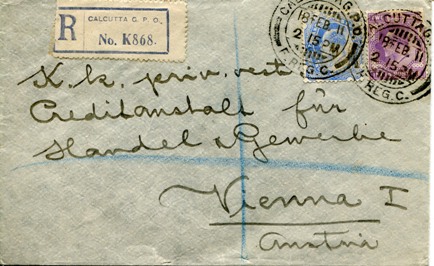 R
CALCUTTA G. P. O.,
No. K868.
CALCUTTA G.P.O.
18 FEB 11
2 15 PM
REG.C.
CALCUTTA G.
18 FEB 11
2 15 PM
REG.C.
K. k. priv. oest
Creditanstalt für
Handel & Gewerbe
Vienna I
Austria